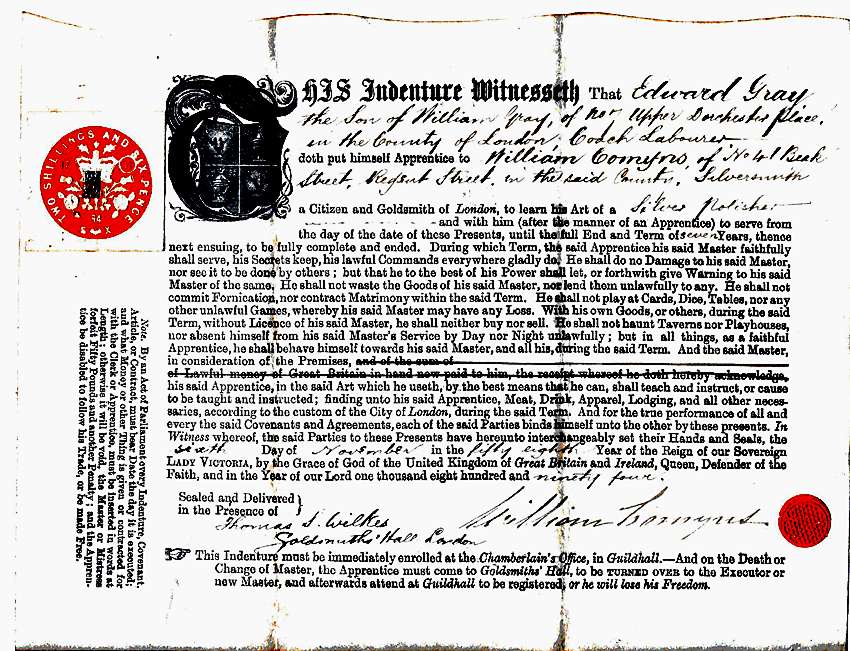 THIS Indenture Witnesseth That Edward Gray
the Son of William Gray, of Upper Dorchester Place,
in the County of London, Coach Labourer
doth put himself Apprentice to William Comyns, of No 41 Beak
Street, Regent Street, in the said County, Silversmith
a Citizen and Goldsmith of London, to learn his Art of a Silver Polisher
- and with him (after the manner of an Apprentice) to serve from
the day of the date of these Presents, until the full End and Term of seven Years, thence
next ensuing, to be fully complete and ended. During which Term, the said Apprentice his said Master faithfully
shall serve, his Secrets keep, his lawful Commands everywhere gladly do. He shall do no Damage to his said Master,
nor see it to be done by others; but that he to the best of his Power shall let, or forthwith give Warning to his said
Master of the same. He shall not waste the Goods of his said Master, nor lend them unlawfully to any. He shall not
commit Fornication, nor contract Matrimony within the said Term. He shall not play at Cards, Dice, Tables, nor any
other unlawful Games, whereby his said Master may have any Loss. With his own Goods, or others, during the said
Term, without Licence of his said Master, he shall neither buy nor sell. He shall not haunt Taverns nor Playhouses,
nor absent himself from his said Master's Service by Day nor Night unlawfully; but in all things, as a faithful
Apprentice, he shall behave himself towards his said Master, and all his, during the said Term. And the said Master,
in consideration of the Premises, and of the sum of
of Lawful money of Great Britain in hand now paid to him, the receipt whereof he doth hereby acknowledge,
his said Apprentice, in the said Art which he useth, by the best means that he can, shall teach and instruct, or cause
to be taught and instructed; finding unto his said Apprentice, Meat, Drink, Apparel, Lodging, and all other neces-
saries, according to the custom of the City of London, during the said Term. And for the true performance of all and
every the said Covenants and Agreements, each of the said Parties binds himself unto the other by these presents. In
Witness whereof, the said Parties to these Presents have hereunto interchangeably set their Hands and Seals, the
sixth Day of November in the fifty eighth Year of the Reign of our Sovereign
LADY VICTORIA, by the Grace of God of the United Kingdom of Great Britain and Ireland, Queen, Defender of the
Faith, and in the Year of our Lord one thousand eight hundred and ninety four.
Sealed and Delivered
in the Presence of
Thomas S. Wilkes
Goldsmiths' Hall London
William Comyns
This Indenture must be immediately enrolled at the Chamberlain's Office, in Guildhall.—And on the Death or
Change of Master, the Apprentice must come to Goldsmiths' Hall, to be TURNED OVER to the Executor or
new Master, and afterwards attend at Guildhall to be registered, or he will lose his Freedom.
TWO SHILLINGS AND SIX PENCE
94
Note. By an Act of Parliament every Indenture, Covenant,
Article, or Contract, must bear Date the day it is executed;
and what Money or other Thing is given or contracted for
with the Clerk or Apprentice, must be inserted in words at
Length; otherwise it will be void, the Master or Mistress
forfeit Fifty Pounds and another Penalty; and the Appren-
tice be disabled to follow his Trade, or be made Free.